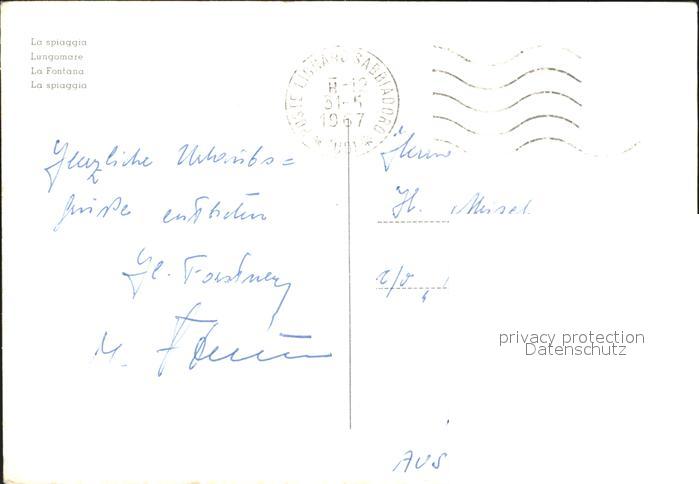 La spiaggia
Lungomare
La Fontana
La spiaggia
POSTE LIGNANO SABBIADORO
31-5
1967
(UD)
Herzliche Urlaubs=
grüße entbieten
M.
Herrn
H. Meisel
c/o
privacy protection
Datenschutz
AUS